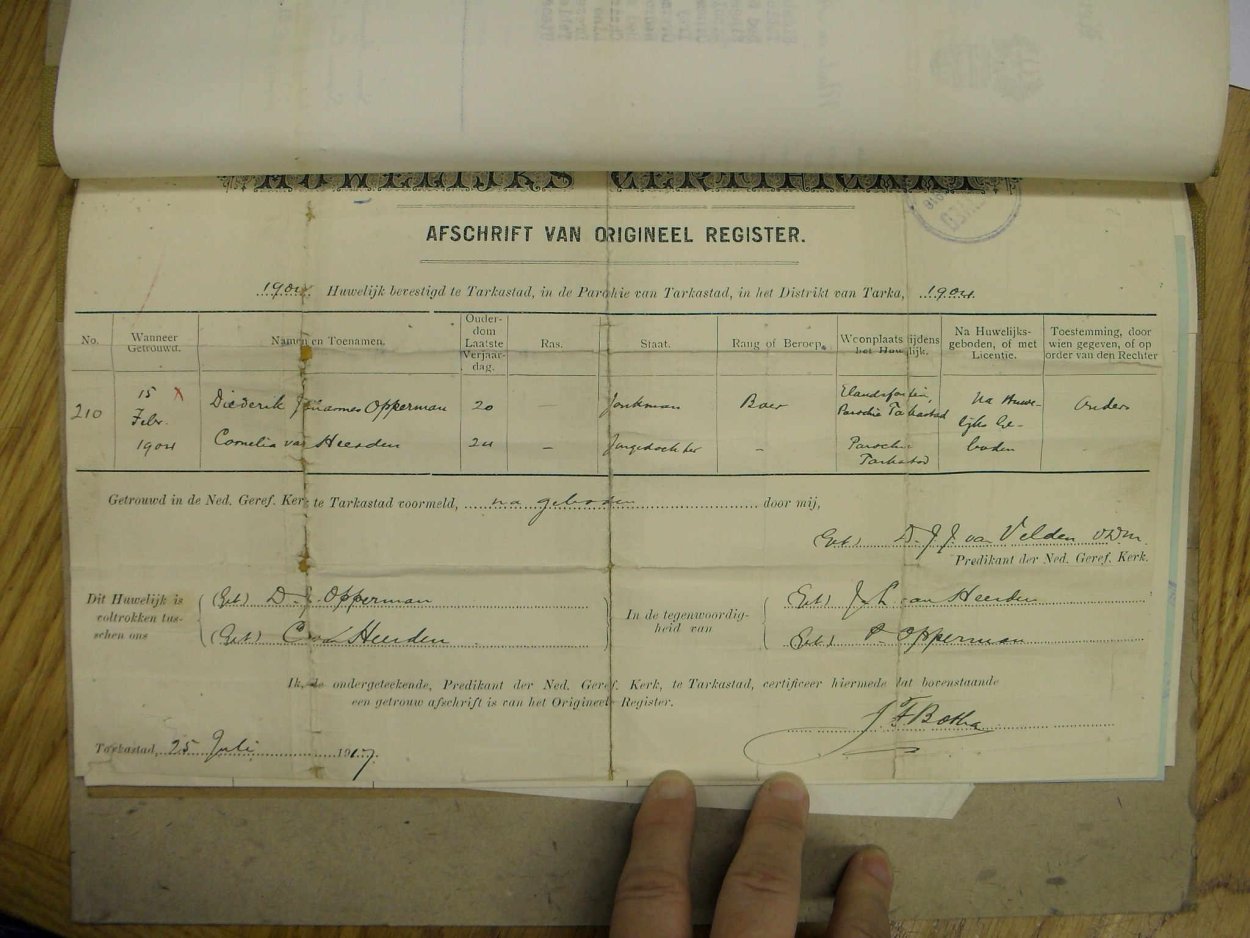 HUWELIJKS CERTIFICAAT
AFSCHRIFT VAN ORIGINEEL REGISTER.
1904 Huwelijk bevestigd te Tarkastad, in de Parochie van Tarkastad, in het Distrikt van Tarka, 1904.
No. Wanneer Getrouwd. Namen en Toenamen. Ouderdom Laatste Verjaardag. Ras. Staat. Rang of Beroep. Woonplaats tijdens het Huwelijk. Na Huwelijksgeboden, of met Licentie. Toestemming, door wien gegeven, of op order van den Rechter
210 15 Febr. 1904 X
Diederik Johannes Opperman 20 — Jonkman Boer Elandsfontein, Parochie Tarkastad Na Huwelijks Geboden Ouders
Cornelia van Heerden 24 Jongedochter – Parochie Tarkastad
Getrouwd in de Ned. Geref. Kerk te Tarkastad voormeld, na geboden door mij,
(Get) D. J. J. van Velden V.D.M.
Predikant der Ned. Geref. Kerk.
Dit Huwelijk is voltrokken tusschen ons
(Get) D. J. Opperman
(Get) C v Heerden
In de tegenwoordigheid van
(Get) van Heerden
(Get) P. Opperman
Ik, de ondergeteekende, Predikant der Ned. Geref. Kerk, te Tarkastad, certificeer hiermede dat bovenstaande
een getrouw afschrift is van het Origineel Register.
J F Botha
Tarkastad, 25 Juli 1917.